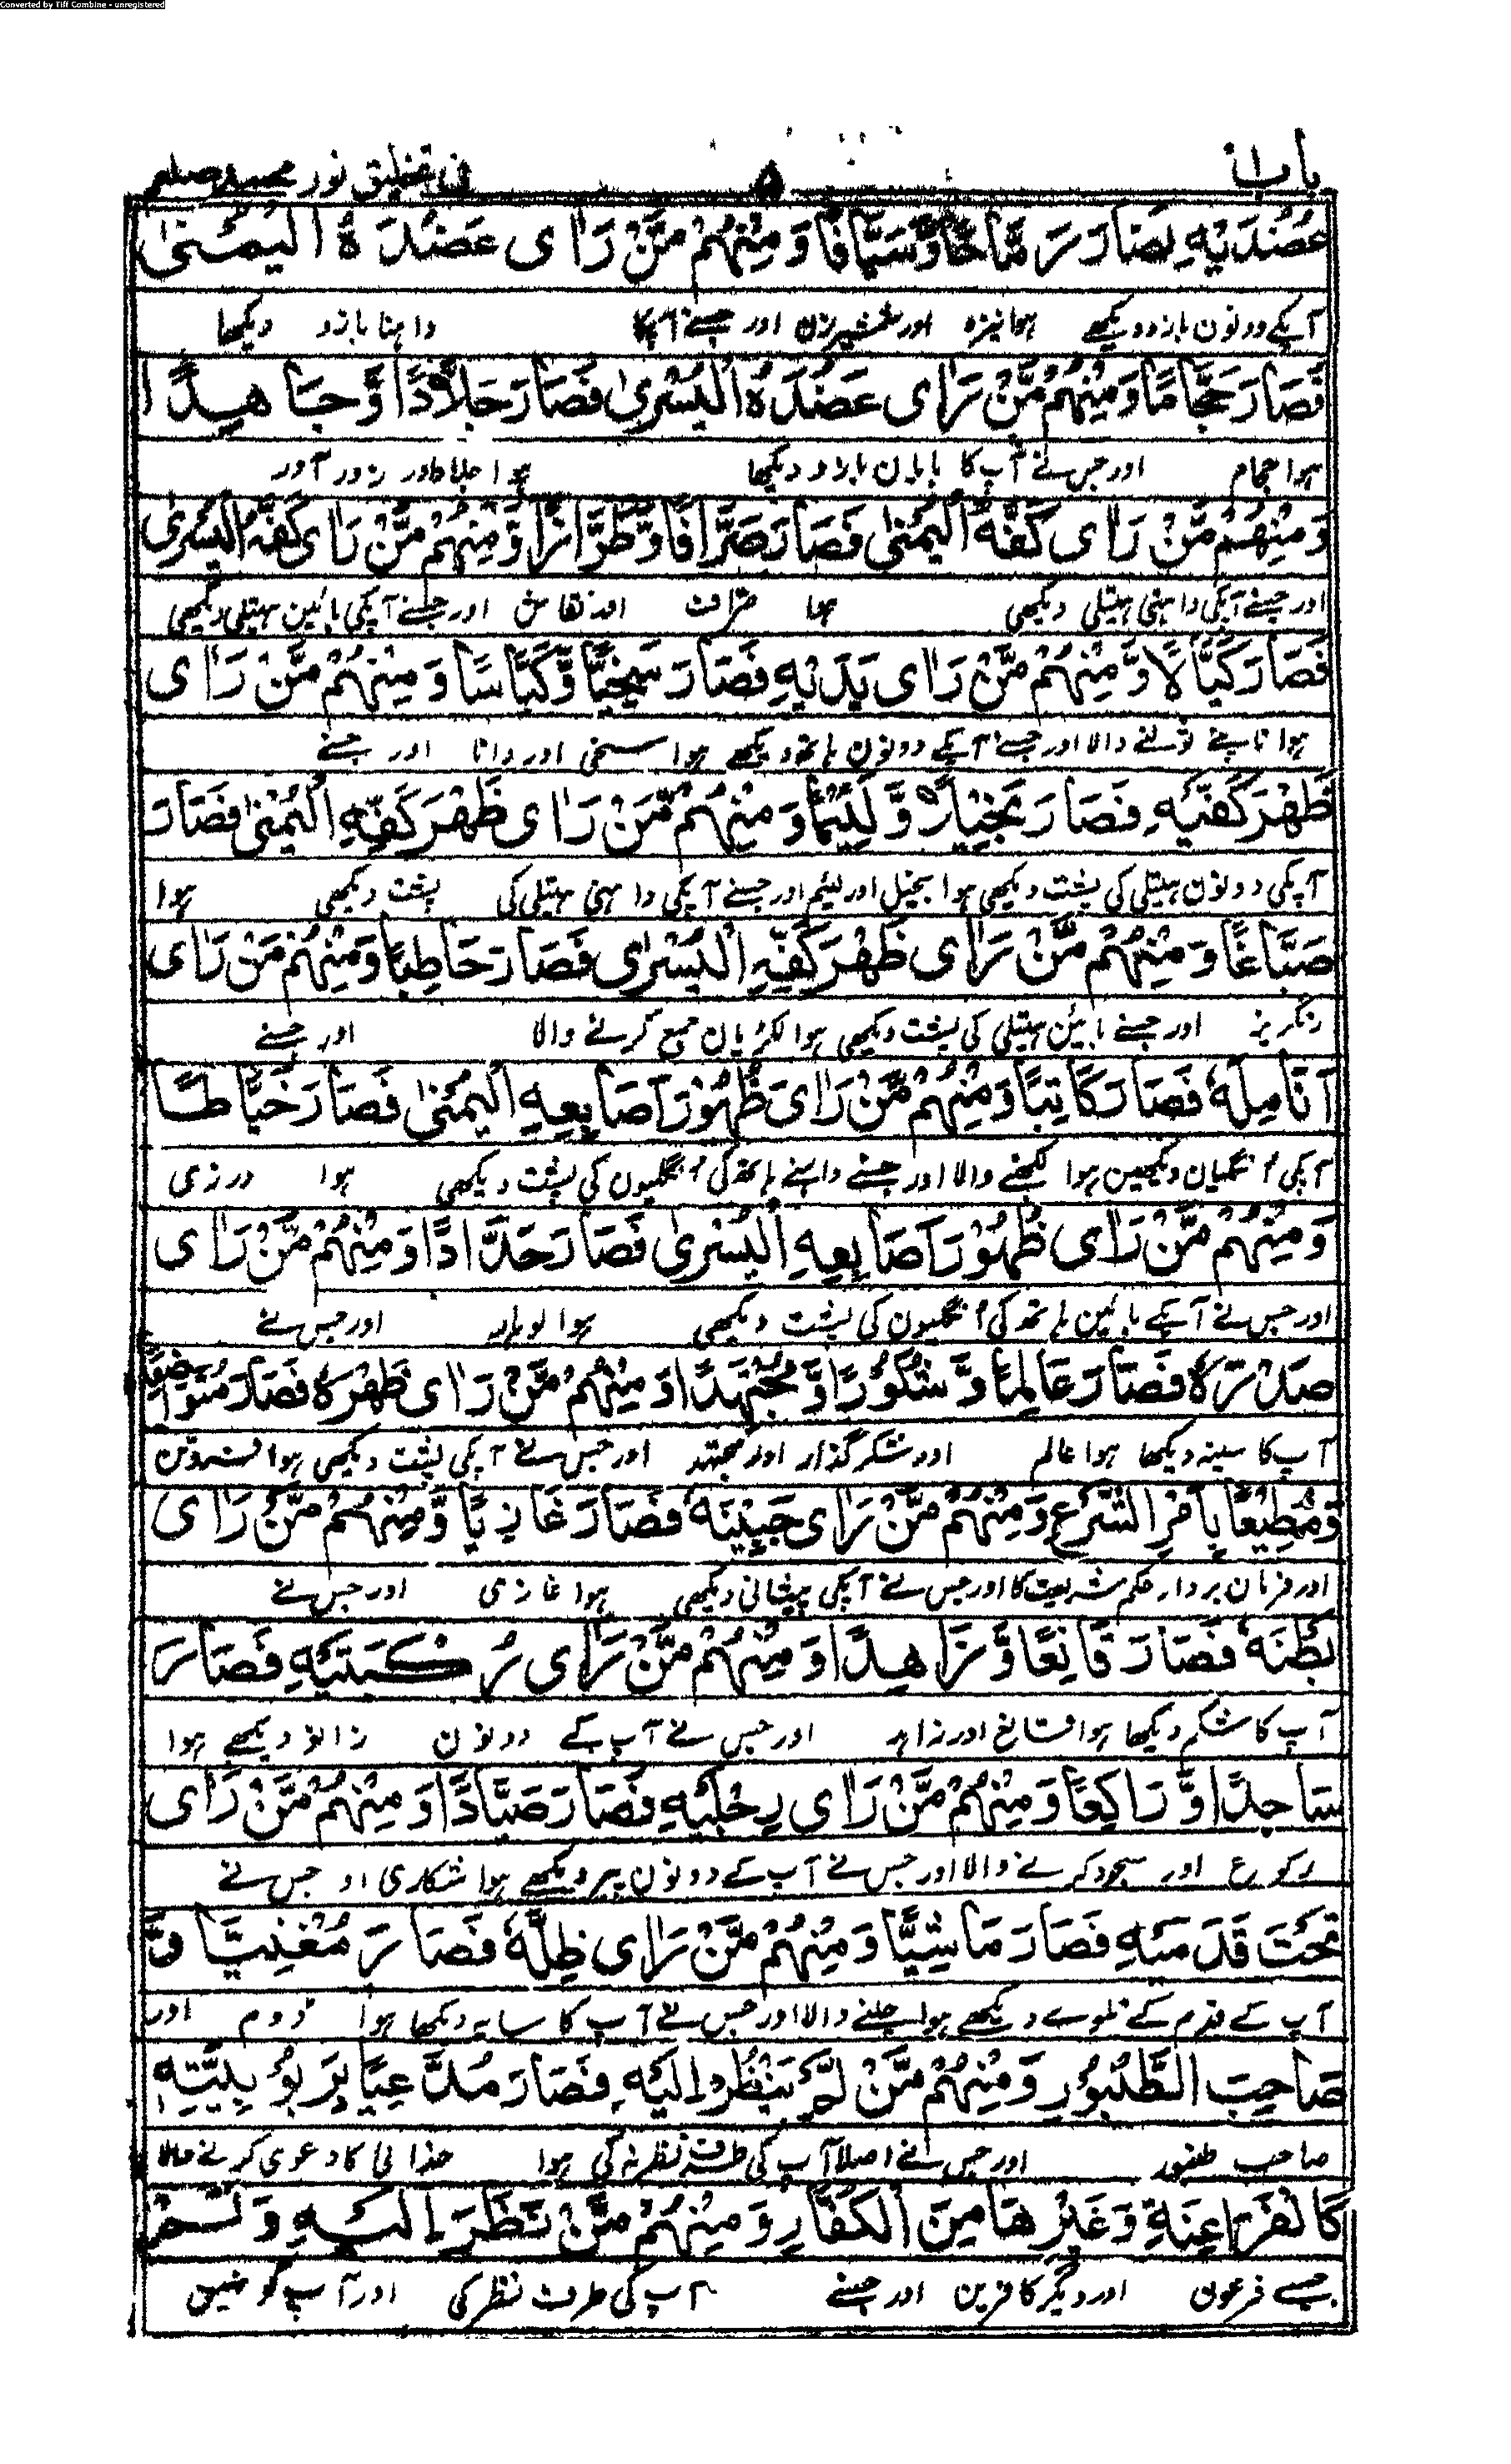 Converted by Tiff Combine - unregistered
باب ا
۵
فی تخلیق نور محمد صلعم
عَضُدَیْهِ فَصَارَ رَمَّاحًا وَّسَیَّافًا وَمِنْهُمْ مَّنْ رَاٰی عَضُدَهُ الْیُمْنٰی
آپکے دونون بازو دیکھے ہوا نیزہ اور شمشیرزن اور جسنے آپکا داہنا بازو دیکھا
فَصَارَ حَجَّامًا وَمِنْهُمْ مَّنْ رَاٰی عَضُدَهُ الْیُسْرٰی فَصَارَ جَلَّادًا وَّجَاهِدًا
ہوا حجام اور جس نے آپ کا بایان بازو دیکھا ہوا جلاد اور زور آور
وَمِنْهُمْ مَّنْ رَاٰی كَفَّهُ الْیُمْنٰی فَصَارَ صَرَّافًا وَّطَرَّازًا وَّمِنْهُمْ مَّنْ رَاٰی كَفَّهُ الْیُسْرٰی
اور جسنے آپکی داہنی ہتیلی دیکھی ہوا صراف اور نقاش اور جسنے آپکی بائین ہتیلی دیکھی
فَصَارَ كَیَّالًا وَّمِنْهُمْ مَّنْ رَاٰی یَدَیْهِ فَصَارَ سَخِیًّا وَّكَیَّاسًا وَمِنْهُمْ مَّنْ رَاٰی
ہوا ناپنے تولنے والا اور جسنے آپکے دونون ہاتھ دیکھے ہوا سخی اور دانا اور جسنے
ظَهْرَ كَفَّیْهِ فَصَارَ بَخِیْلًا وَّلَئِیْمًا وَمِنْهُمْ مَّنْ رَاٰی ظَهْرَ كَفِّهِ الْیُمْنٰی فَصَارَ
آپکی دونون ہتیلی کی پشت دیکھی ہوا بخیل اور لئیم اور جسنے آپکی داہنی ہتیلی کی پشت دیکھی ہوا
صَبَّاغًا وَمِنْهُمْ مَّنْ رَاٰی ظَهْرَ كَفِّهِ الْیُسْرٰی فَصَارَ حَاطِبًا وَمِنْهُمْ مَنْ رَاٰی
رنگریز اور جسنے بائین ہتیلی کی پشت دیکھی ہوا لکڑیان جمع کرنے والا اور جسنے
اَنَامِلَهٗ فَصَارَ كَاتِبًا وَمِنْهُمْ مَّنْ رَاٰی ظُهُوْرَ اَصَابِعِهِ الْیُمْنٰی فَصَارَ خَیَّاطًا
آپکی اُنگلیان دیکھین ہوا لکھنے والا اور جسنے داہنے ہاتھ کی اُنگلیون کی پشت دیکھی ہوا درزی
وَمِنْهُمْ مَّنْ رَاٰی ظُهُوْرَ اَصَابِعِهِ الْیُسْرٰی فَصَارَ حَدَّادًا وَمِنْهُمْ مَّنْ رَاٰی
اور جس نے آپکے بائین ہاتھ کی اُنگلیون کی پشت دیکھی ہوا لوہار اور جس نے
صَدْرَهٗ فَصَارَ عَالِمًا وَّشَكُوْرًا وَّمُجْتَهِدًا وَمِنْهُمْ مَّنْ رَاٰی ظَهْرَهٗ فَصَارَ مُتَوَاضِعًا
آپ کا سینہ دیکھا ہوا عالم اور شکر گذار اور مجتہد اور جس نے آپکی پشت دیکھی ہوا
وَّمُطِیْعًا بِاَمْرِ الشَّرْعِ وَمِنْهُمْ مَّنْ رَاٰی جَبِیْنَهٗ فَصَارَ غَازِیًا وَّمِنْهُمْ مَّنْ رَاٰی
اور فرمان بردار حکم شریعت کا اور جس نے آپکی پیشانی دیکھی ہوا غازی اور جس نے
بَطْنَهٗ فَصَارَ قَانِعًا وَّزَاهِدًا وَمِنْهُمْ مَّنْ رَاٰی رُكْبَتَیْهِ فَصَارَ
آپ کا شکم دیکھا ہوا قانع اور زاہد اور جس نے آپ کے دونون زانو دیکھے ہوا
سَاجِدًا وَّرَاكِعًا وَمِنْهُمْ مَّنْ رَاٰی رِجْلَیْهِ فَصَارَ صَیَّادًا وَمِنْهُمْ مَّنْ رَاٰی
رکوع اور سجود کرنے والا اور جس نے آپ کے دونون پیر دیکھے ہوا شکاری او جس نے
تَحْتَ قَدَمَیْهِ فَصَارَ مَاشِیًّا وَمِنْهُمْ مَّنْ رَاٰی ظِلَّهٗ فَصَارَ مُغَنِّیًا وَّ
آپ کے قدم کے تلوے دیکھے ہوا چلنے والا اور جس نے آپ کا سایہ دیکھا ہوا ڈوم اور
صَاحِبَ الطُّنْبُوْرِ وَمِنْهُمْ مَّنْ لَّمْ یَنْظُرْ اِلَیْهِ فَصَارَ مُدَّعِیًا بِرَبُوْبِیَّتِهٖ
صاحب طنبور اور جس نے اصلا آپ کی طرف نظر نہ کی ہوا خدائی کا دعوی کرنے والا
كَالْفَرَاعِنَةِ وَغَیْرِهَا مِنَ الْكُفَّارِ وَمِنْهُمْ مَّنْ نَظَرَ اِلَیْهِ وَلَمْ
جیسے فرعون اور دیگر کافرین اور جسنے آپ کی طرف نظر کی اور آپ کو نہین